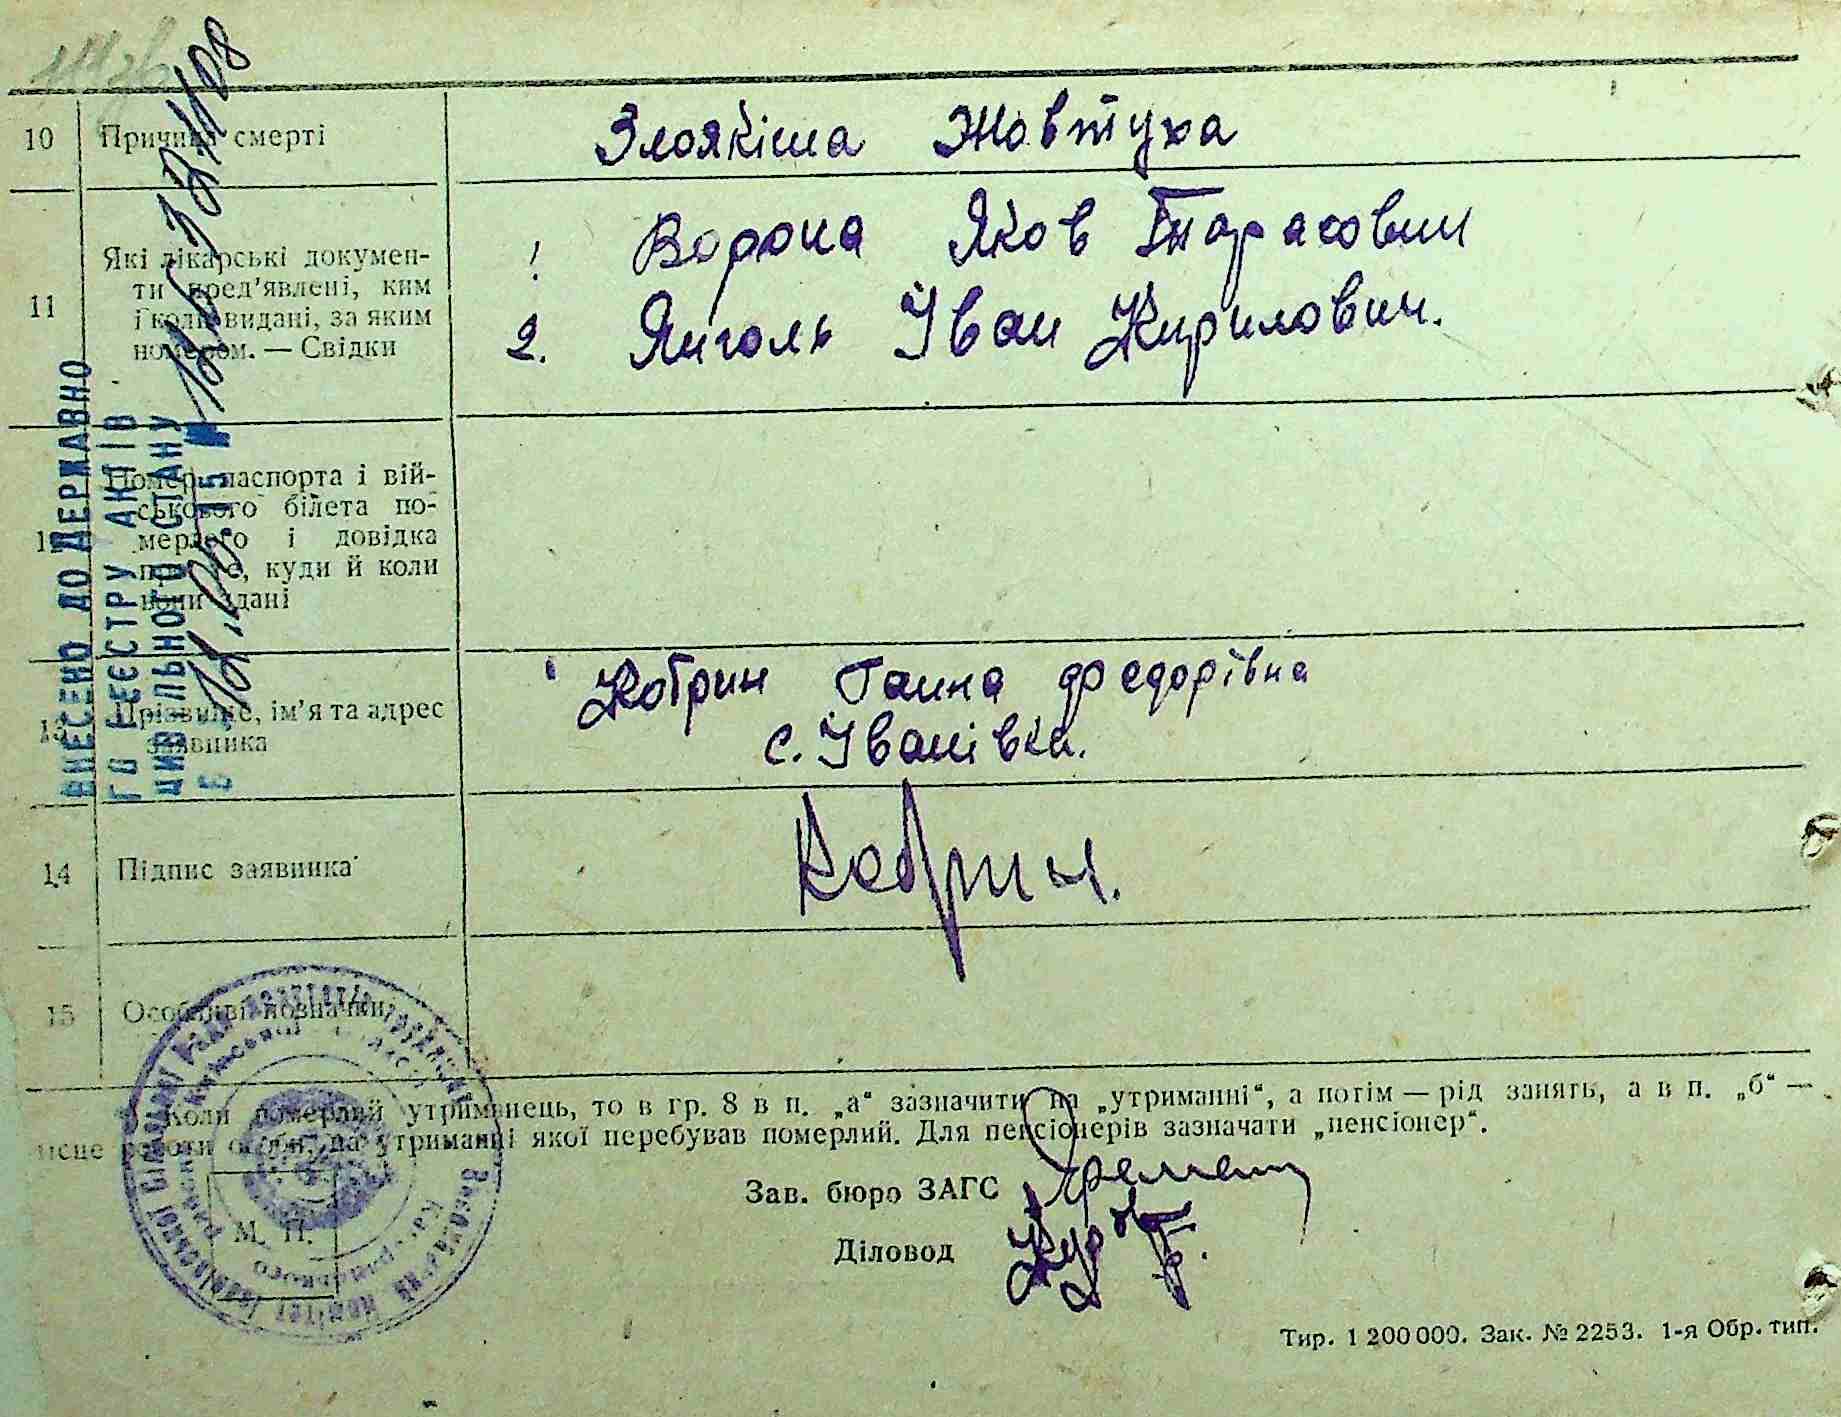 10 Причина смерті
Злоякісна Жовтуха
11 Які лікарські докумен-
ти пред’явлені, ким
і коли видані, за яким
номером. — Свідки
1 Ворона Яков Тарасович
2. Янголь Іван Кирилович.
Номер паспорта і вій-
ськового білета по-
мерлого і довідка
про те, куди й коли
вони здані
13 Прізвище, ім’я та адрес
заявника
Кобрин Ганна Федорівна
с. Іванівка.
14 Підпис заявника
Кобрин.
15 Особливі позначки
Коли померлий утриманець, то в гр. 8 в п. „а“ зазначити на „утриманні“, а потім — рід занять, а в п. „б“ —
місце роботи особи, на утриманні якої перебував померлий. Для пенсіонерів зазначати „пенсіонер“.
Зав. бюро ЗАГС
Діловод
М. П.
Тир. 1 200 000. Зак. № 2253. 1-я Обр. тип.
ВНЕСЕНО ДО ДЕРЖАВНО
ГО РЕЄСТРУ АКТІВ
ЦИВІЛЬНОГО СТАНУ